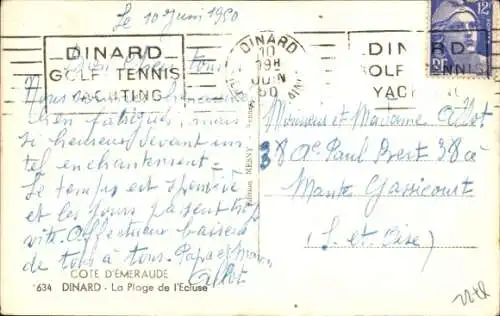 Le 10 Juin 1950
DINARD
GOLF TENNIS
YACHTING
DINARD
10
19H
JUIN
50
DINARD
GOLF TENNIS
YACH
12F
Bien chers tous
Nous
bien fatigués, mais
si heureux devant un
tel enchantement =
Le temps est
et les jours passent trop
vite. Affectueux baisers
de tous à tous. Papa et Maman
Allot
Monsieur et Madame Allot
38 Ac. Paul Bert 38 à
Mante Gassicourt
(S. et Oise)
Edition MESNY
COTE D'ÉMERAUDE
634 DINARD - La Plage de l'Ecluse